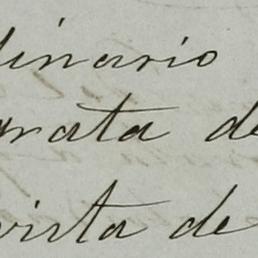 dinario
arata de
vista de